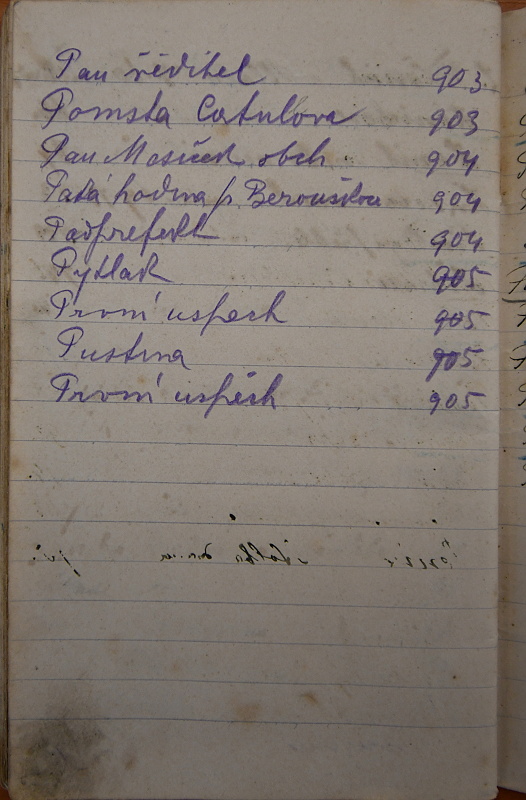 Pan ředitel 903
Pomsta Catulova 903
Pan Masíček obch. 904
Patá hodina p. Beroušková 904
Podprefekt 904
Pytlák 905
První uspěch 905
Pustina 905
První uspěch 905